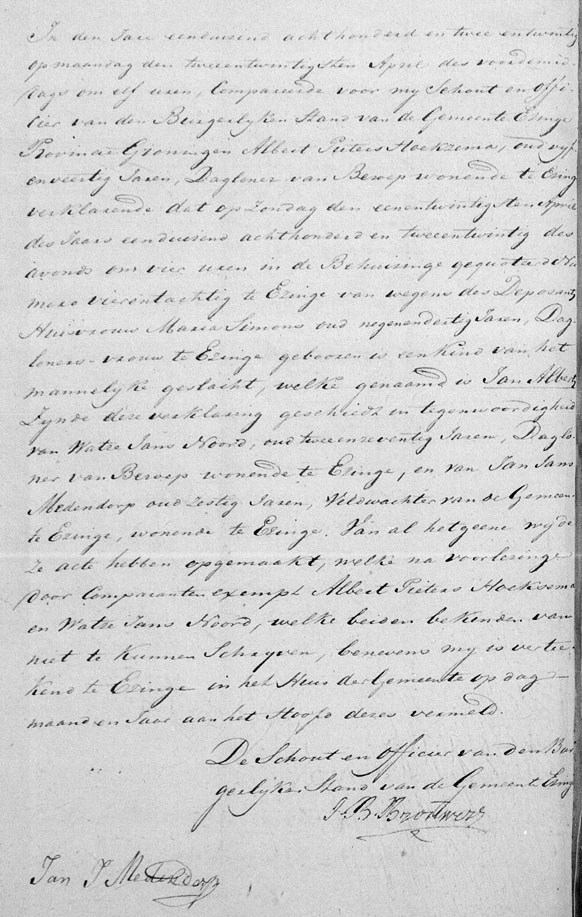 In den Jare eenduisend achthonderd en twee entwintig
op maandag den tweeentwintigsten April des voordemid-
dags om elf uren, Compareerde voor my Schout en offi-
cier van den Burgerlyken Stand van de Gemeente Ezinge
Provincie Groningen Albert Pieters Hoekzema, oud vyf
enveertig Jaren, Dagloner van Beroep wonende te Ezinge
verklarende dat op Zondag den eenentwintigsten April
des Jaars eenduisend achthonderd en tweeentwintig des
avonds om vier uren in de Behuisinge gequoteerd Nu
mero vierentachtig te Ezinge van wegens des Deposants
Huisvrouw Maria Simons oud negenendertig Jaren, Dag-
loners-vrouw te Ezinge geboren is een kind van het
mannelyke geslacht, welke genaamd is Jan Alberts
Zynde deze verklaring geschiedt in tegenwoordigheid
van Watze Jans Noord, oud tweenzeventig Jaren, Daglo-
ner van Beroep wonende te Ezinge, en van Jan Jans
Medendorp oud zestig Jaren, Veldwachter van de Gemeen
te Ezinge, wonende te Ezinge. Van al het geene wy de
ze acte hebben opgemaakt, welke na voorlezinge
door Comparanten exempt Albert Pieters Hoeksema
en Watze Jans Noord, welke beiden bekenden van
niet te kunnen Schryven, benevens my is vertee-
kend te Ezinge in het Huis der Gemeente op dag-
maand en Jaar aan het Hoofd dezes vermeld.
De Schout en Officier van den Bur
gerlyken Stand van de Gemeente Ezinge
J. B. Brouwers
Jan J Medendorp